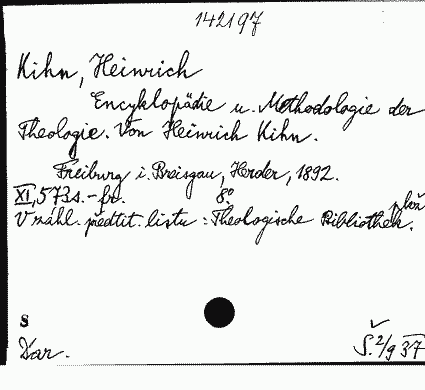 142197
Kihn, Heinrich
Encyklopädie u. Methodologie der
Theologie. Von Heinrich Kihn.
Freiburg i. Breisgau, Herder, 1892.
XI, 573 s. - fr. 8°
V záhl. předtit. listu: Theologische Bibliothek.
S
Dar.
S. 2/9 37